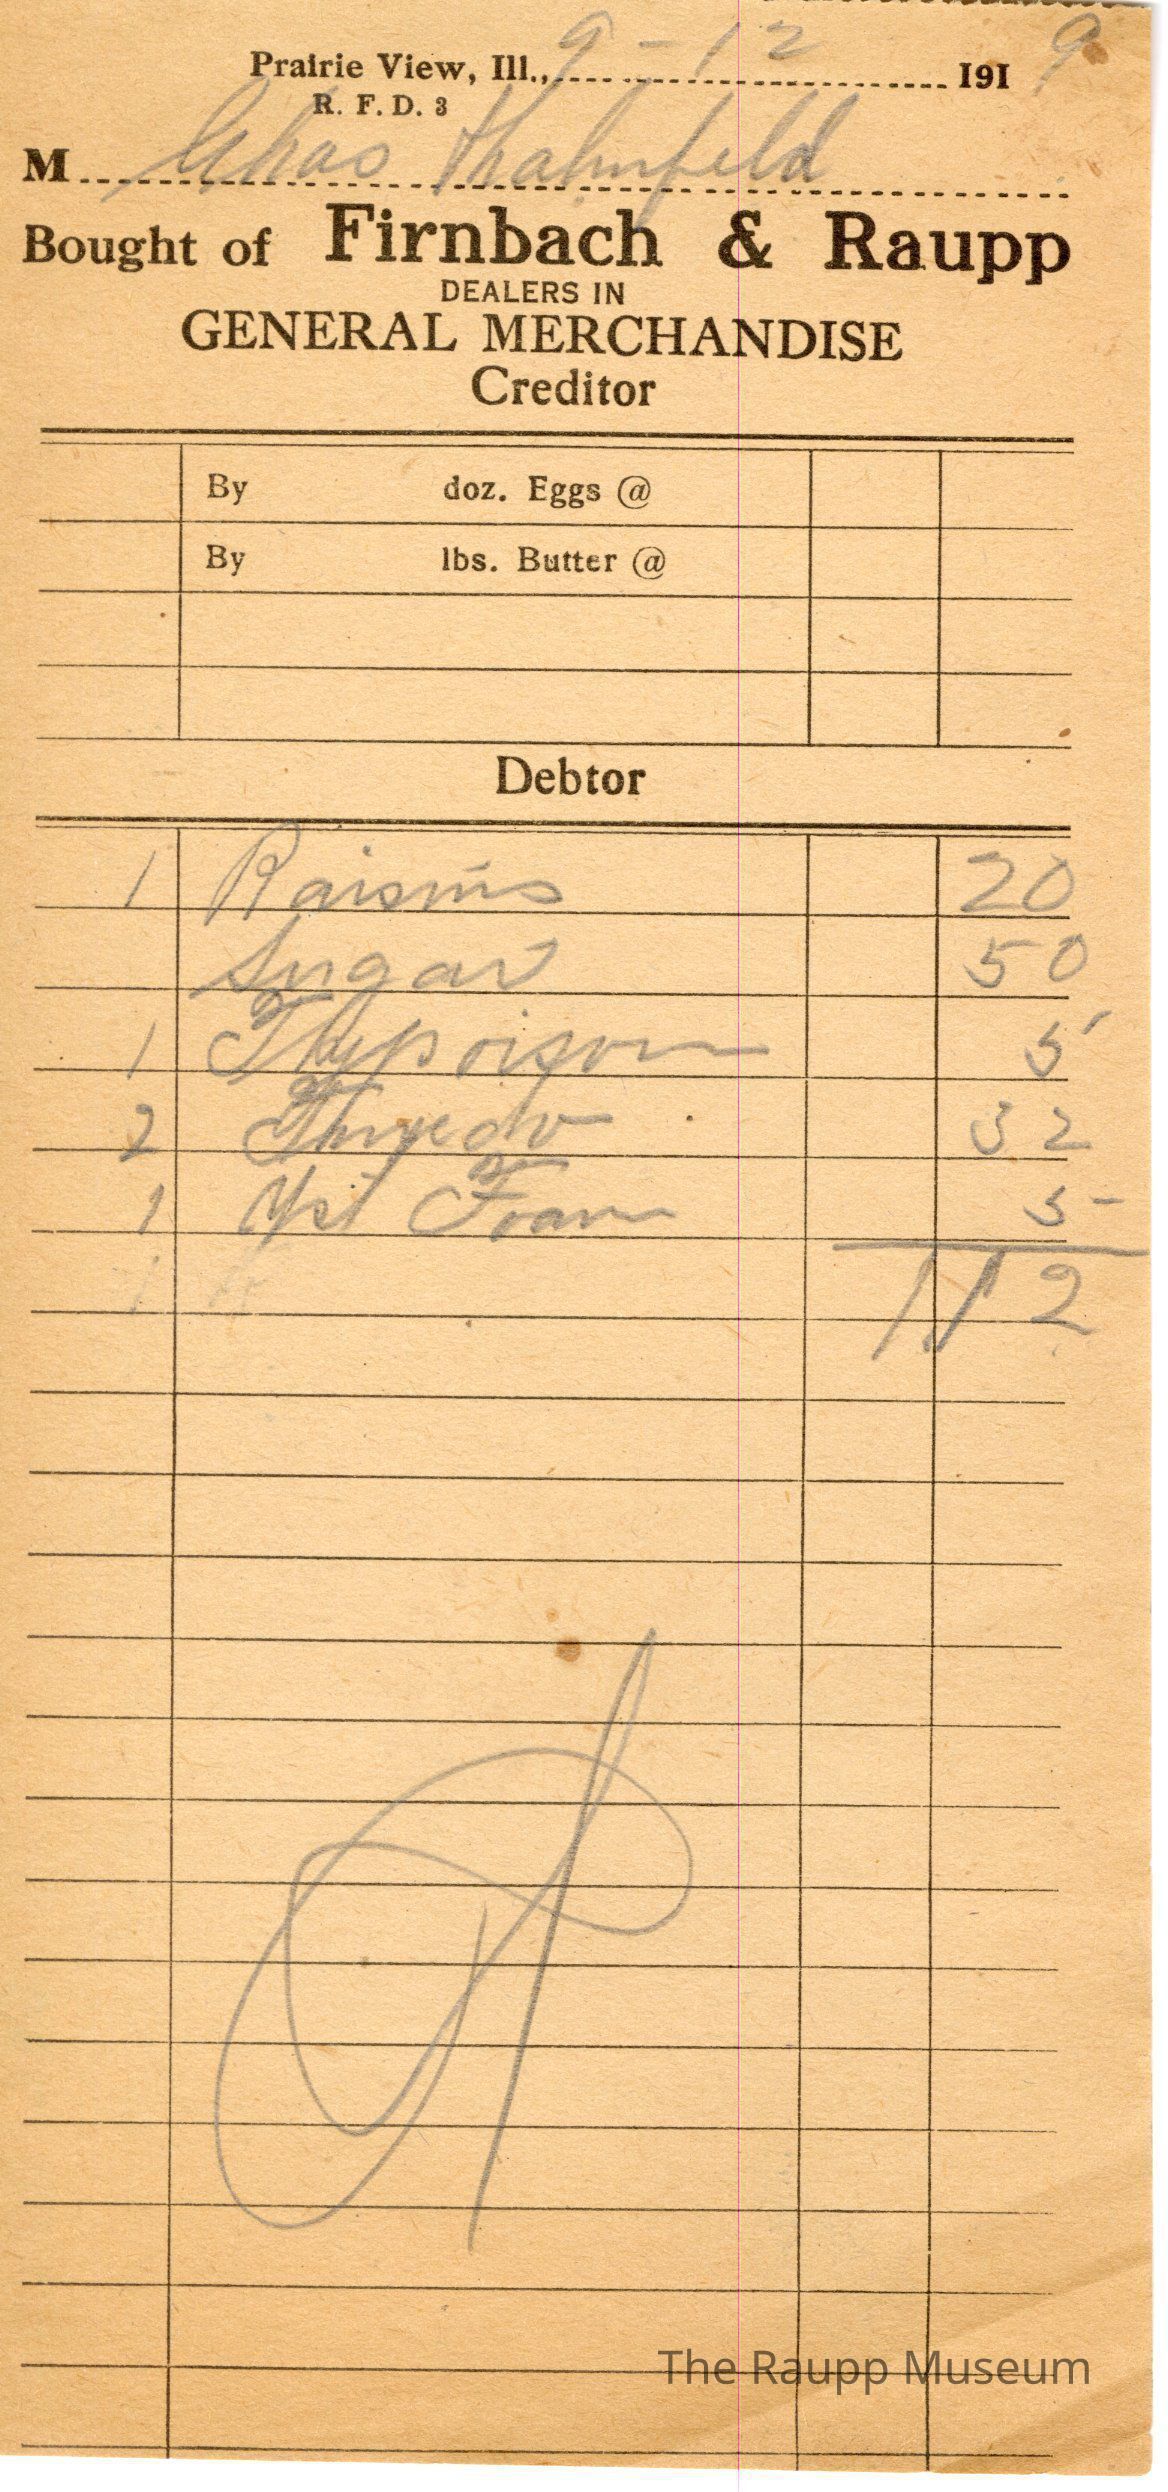 Prairie View, Ill., 9-12 1919
R. F. D. 3
M Chas Thalmfeld
Bought of Firnbach & Raupp
DEALERS IN
GENERAL MERCHANDISE
Creditor
By doz. Eggs @
By lbs. Butter @
Debtor
1 Raisins 20
Sugar 50
1 Fly poison 5
2 32
1 Yst Foam 5
1 12
The Raupp Museum